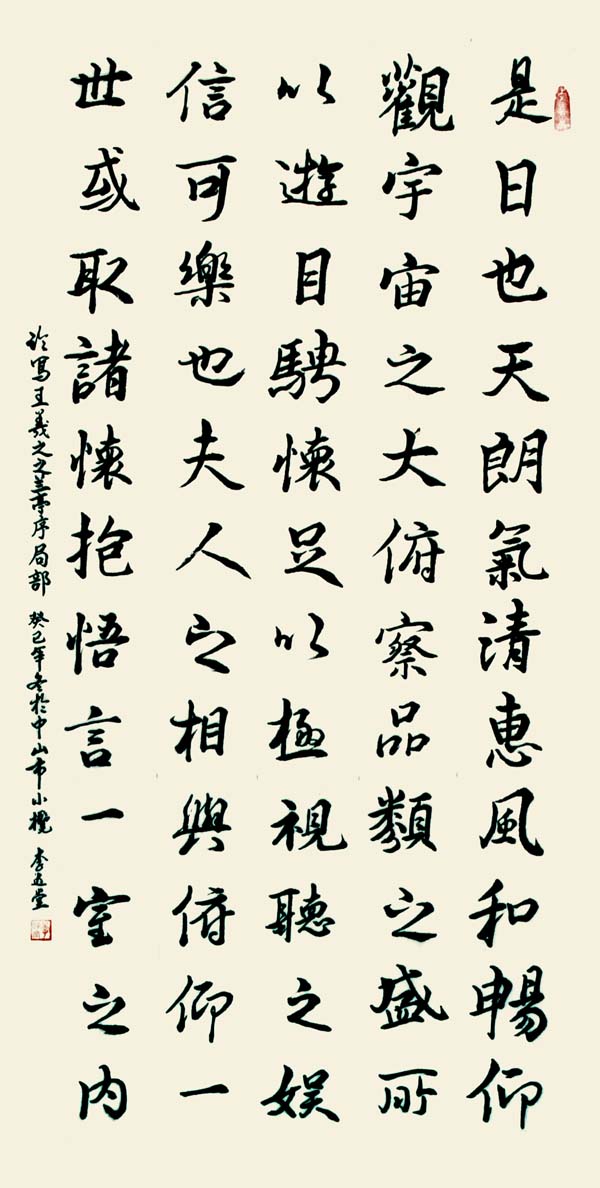 是日也天朗氣清惠風和暢仰
觀宇宙之大俯察品類之盛所
以遊目騁懷足以極視聽之娛
信可樂也夫人之相與俯仰一
世或取諸懷抱悟言一室之内
王羲之之兰亭序局部 癸巳年冬於中山市小欖 李